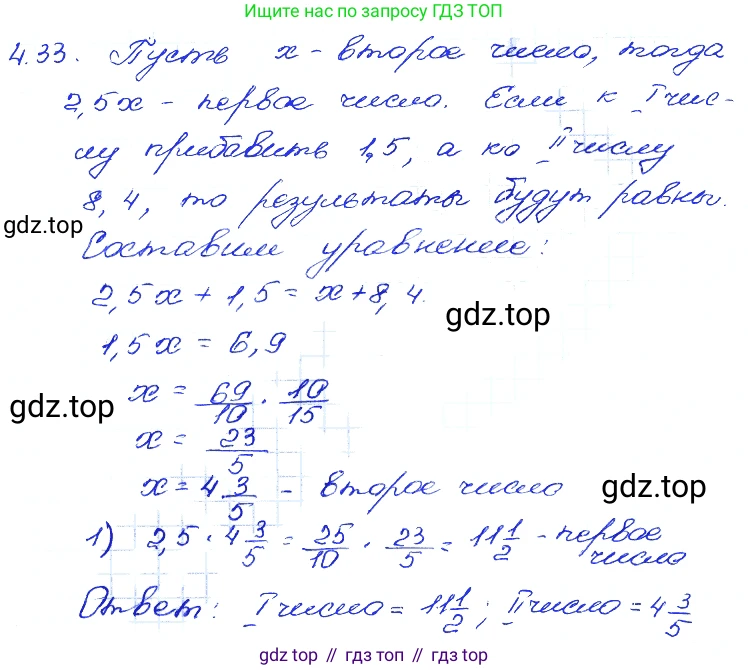 Ищите нас по запросу ГДЗ ТОП
4.33. Пусть x - второе число, тогда
2,5x - первое число. Если к I чис-
лу прибавить 1,5, а ко II числу
8,4, то результаты будут равны.
gdz.top
Составим уравнение:
2,5x + 1,5 = x + 8,4.
gdz.top
1,5x = 6,9
x = 69/10 · 10/15
gdz.top
x = 23/5
x = 4 3/5 - второе число
gdz.top
1) 2,5 · 4 3/5 = 25/10 · 23/5 = 11 1/2 - первое число
Ответ: I число = 11 1/2; II число = 4 3/5
gdz.top // gdz.top // gdz.top